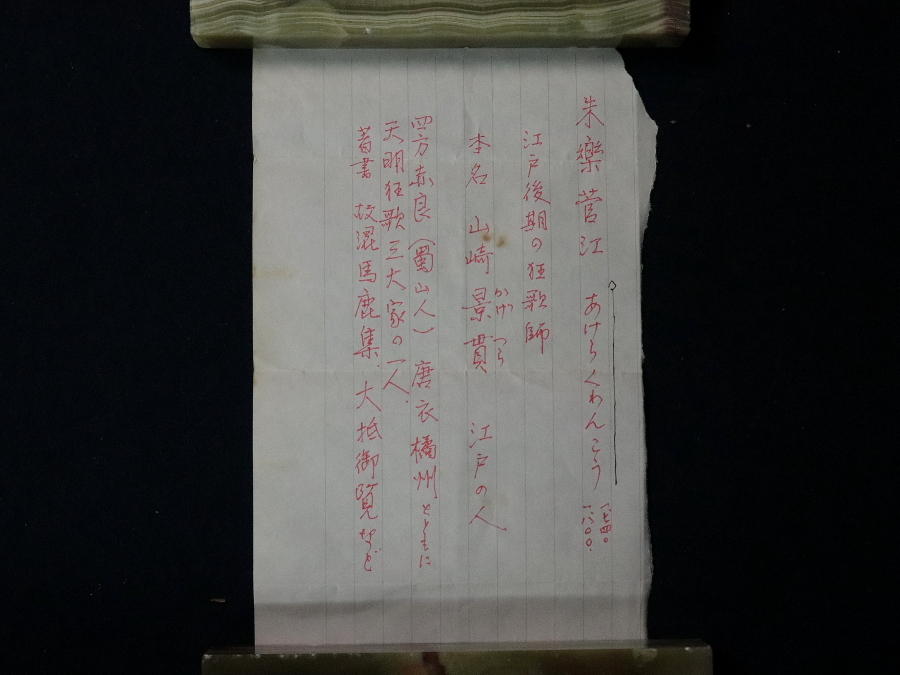 朱樂菅江 あけらくわんこう 一七四〇 一八〇〇.
江戸後期の狂歌師
本名 山崎景貫 江戸の人
かげ つら
四方赤良(蜀山人) 唐衣橘州とともに
天明狂歌三大家の一人.
著書 故混馬鹿集、大抵御覧など